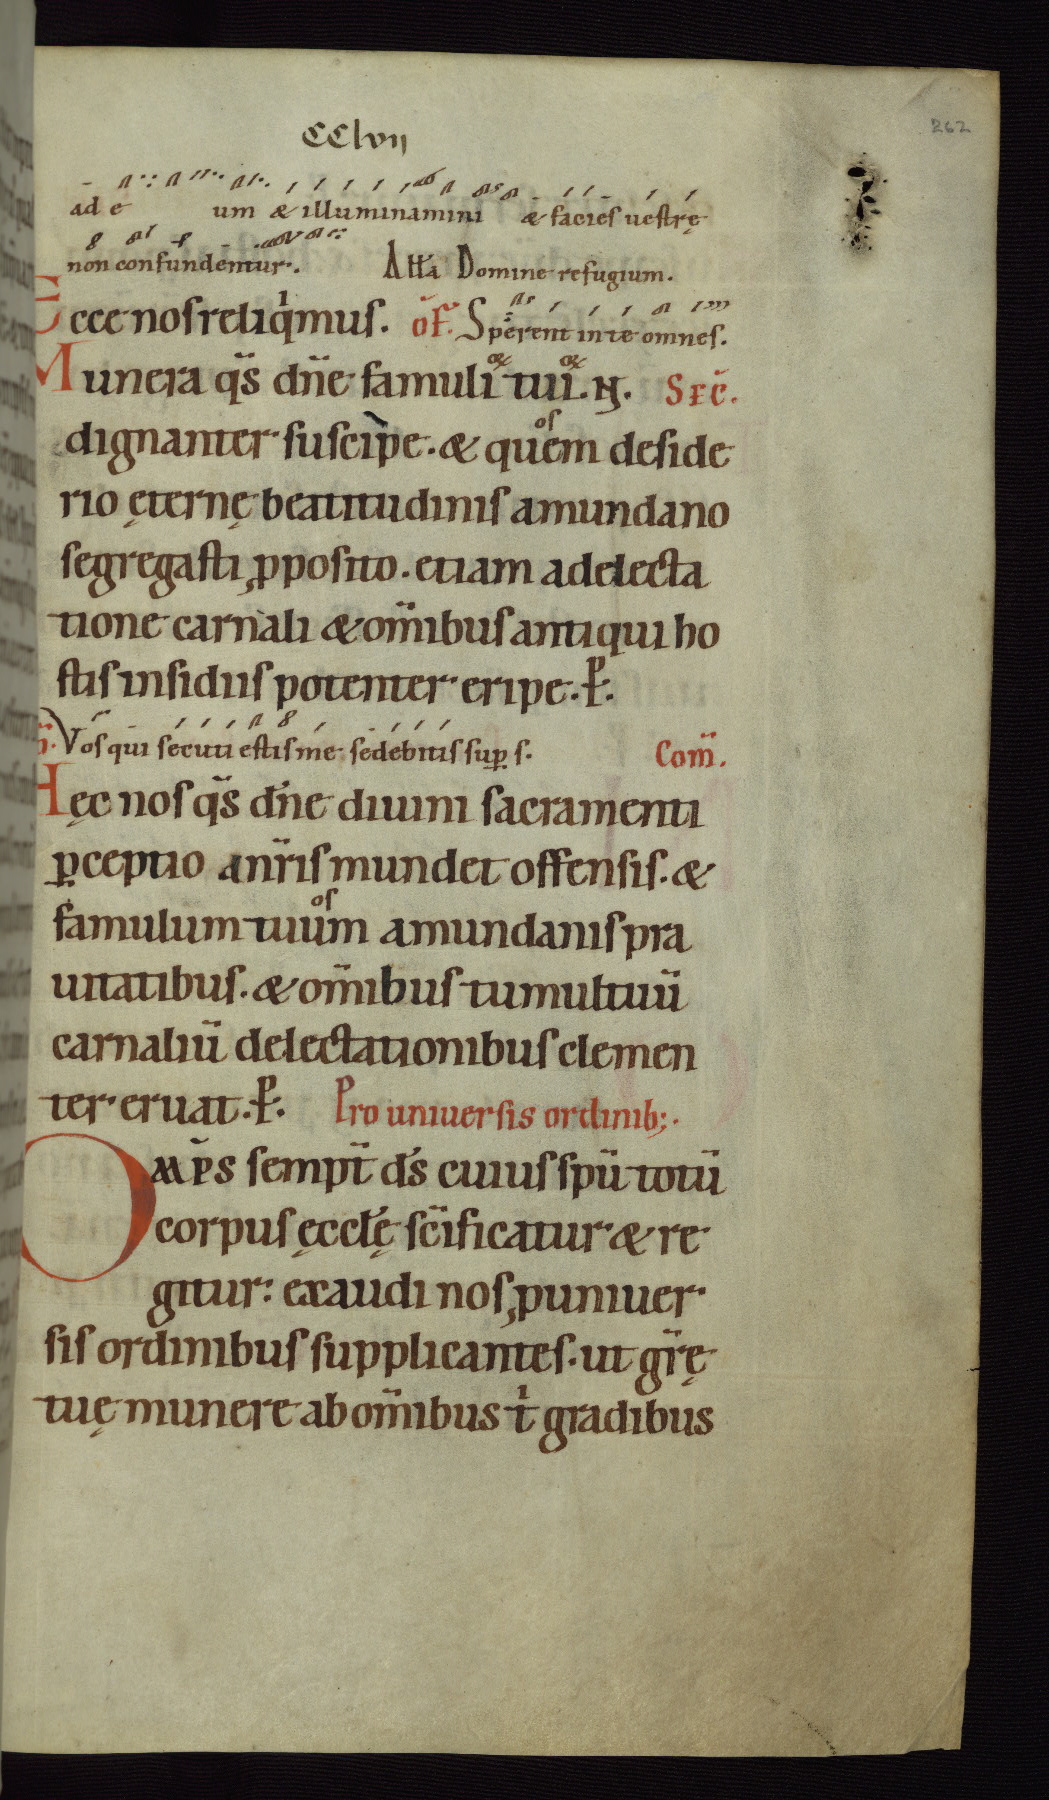 CClvij
262
ad e um & illuminamini & facies uestrę
non confundentur. Atta Domine refugium.
Ecce nos reliqͥmus. of. Sperent in te omnes.
Munera qs̄ dn̄e famuliorꝝ tuiorꝝ. N. Sec̄.
dignanter suscipe. & quosem deside
rio ęternę beatitudinis a mundano
segregasti ꝓposito. etiam a delecta
tione carnali & om̄ibus antiqui ho
stis insidiis potenter eripe. P.
Vos qui secuti estis me sedebitis sup̱ s. Com̄.
Hęc nos qs̄ dn̄e diuini sacramenti
p̱ceptio a nr̄is mundet offensis. &
famulum tuuosm a mundanis pra
uitatibus. & om̄ibus tumultuū
carnaliū delectationibus clemen
ter eruat. P. Pro uniuersis ordinib;.
Omp̄s sempt̄ ds̄ cuius spū totū
corpus ęcclę̄ sc̄ificatur & re
gitur: exaudi nos ꝓ uniuer
sis ordinibus supplicantes. ut gr̄ę
tuę munere ab om̄ibus tͥ gradibus